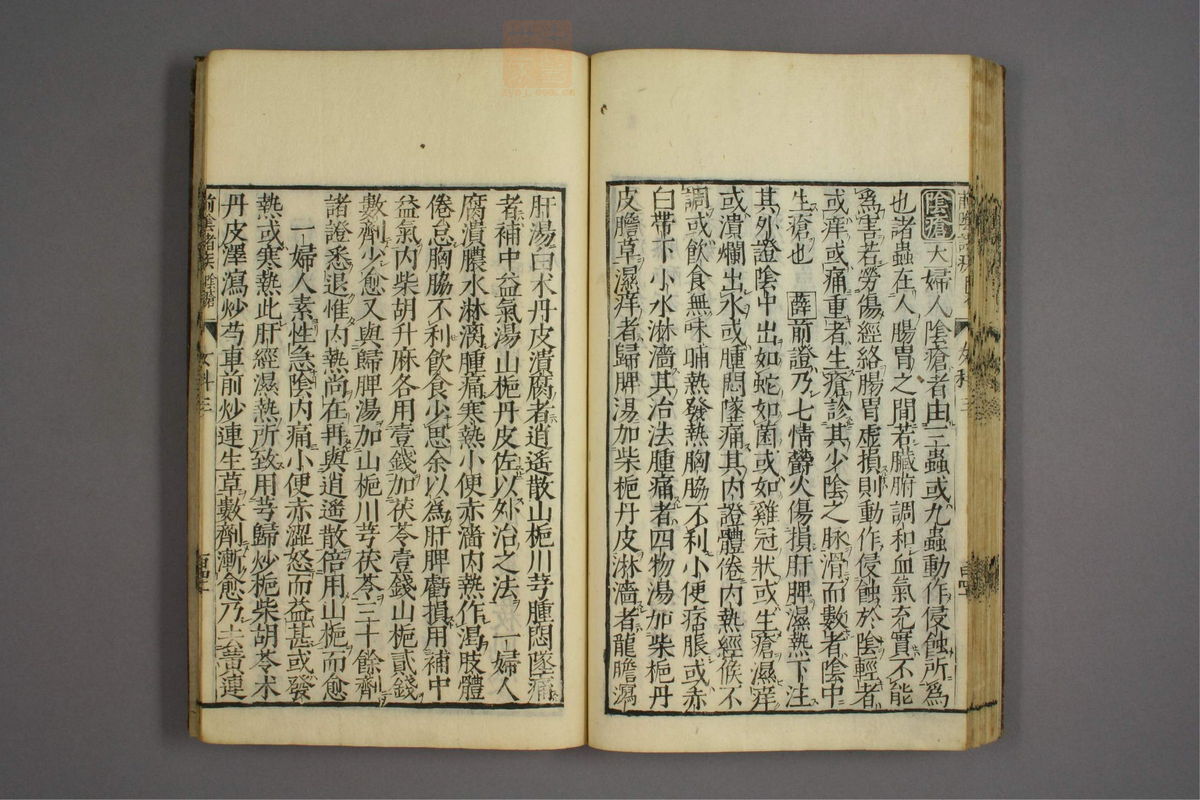 陰瘡 夫婦人陰瘡者由三蟲或九蟲動作侵蝕所爲
也諸蟲在人腸胃之間若臟腑調和血氣充實不能
爲害若勞傷經絡腸胃虛損則動作侵蝕於陰輕者
或痒或痛重者生瘡診其少陰之脉滑而數者陰中
生瘡也 薛 前證乃七情鬱火傷損肝脾濕熱下注
其外證陰中出如蛇如菌或如雞冠狀或生瘡濕痒
或潰爛出水或腫悶墜痛其内證體倦内熱經候不
調或飲食無味晡熱發熱胸脇不利小便痞脹或赤
白帶下小水淋濇其治法腫痛者四物湯加柴梔丹
皮膽草濕痒者歸脾湯加柴梔丹皮淋濇者龍膽瀉
肝湯白术丹皮潰腐者逍遙散山梔川芎腫悶墜痛
者補中益氣湯山梔丹皮佐以外治之法 一婦人
腐潰膿水淋漓腫痛寒熱小便赤濇内熱作渴肢體
倦怠胸脇不利飲食少思余以爲肝脾虧損用補中
益氣内柴胡升麻各用壹錢加茯苓壹錢山梔貳錢
數劑少愈又與歸脾湯加山梔川芎茯苓三十餘劑
諸證悉退惟内熱尚在再與逍遙散倍用山梔而愈
一婦人素性急陰内痛小便赤澀怒而益甚或發
熱或寒熱此肝經濕熱所致用芎歸炒梔柴胡苓术
丹皮澤瀉炒芍車前炒連生草數劑漸愈乃去黄連
女科三